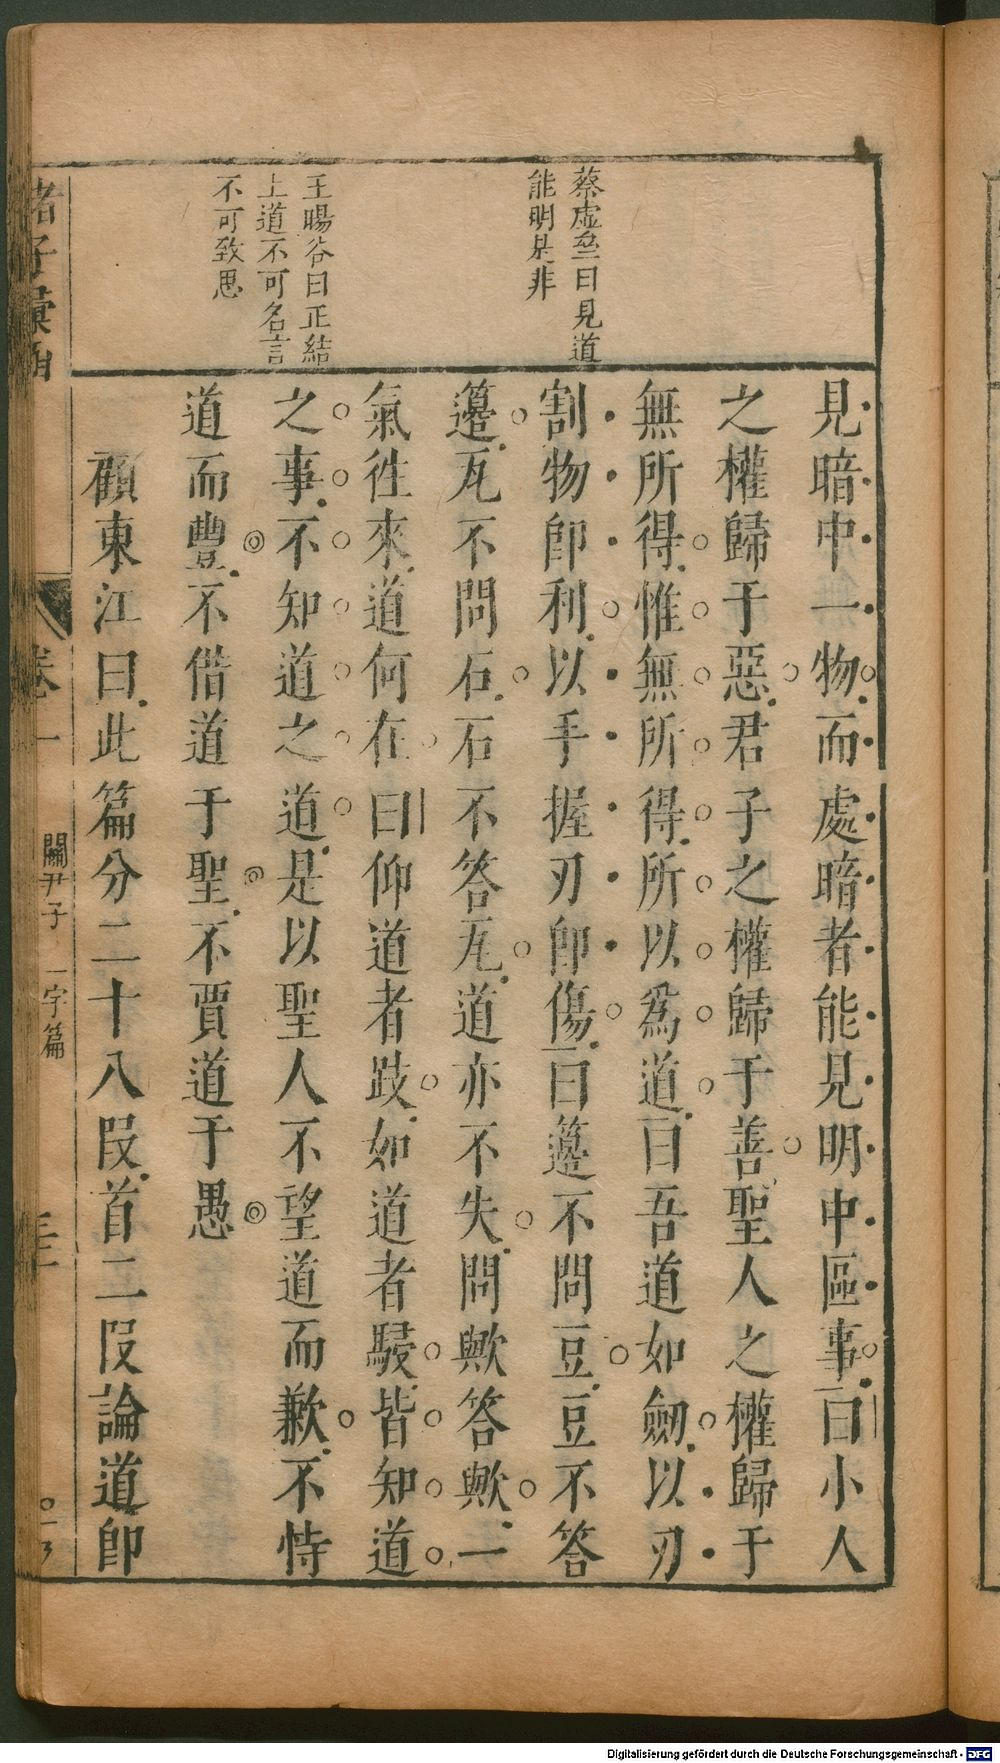 蔡虛臺曰見道
能明是非
王暘谷曰正結
上道不可名言
不可致思
見暗中一物而處暗者能見明中區事曰小人
之權歸于惡君子之權歸于善聖人之權歸于
無所得惟無所得所以爲道曰吾道如劒以刃
割物即利以手握刃即傷曰籩不問豆豆不答
籩瓦不問石石不答瓦道亦不失問歟答歟一
氣徃來道何在曰仰道者跂如道者駸皆知道
之事不知道之道是以聖人不望道而歉不恃
道而豐不借道于聖不賈道于愚
顧東江曰此篇分二十八叚首二叚論道即
諸子彙函
卷一
關尹子
一宇篇
Digitalisierung gefördert durch die Deutsche Forschungsgemeinschaft - DFG